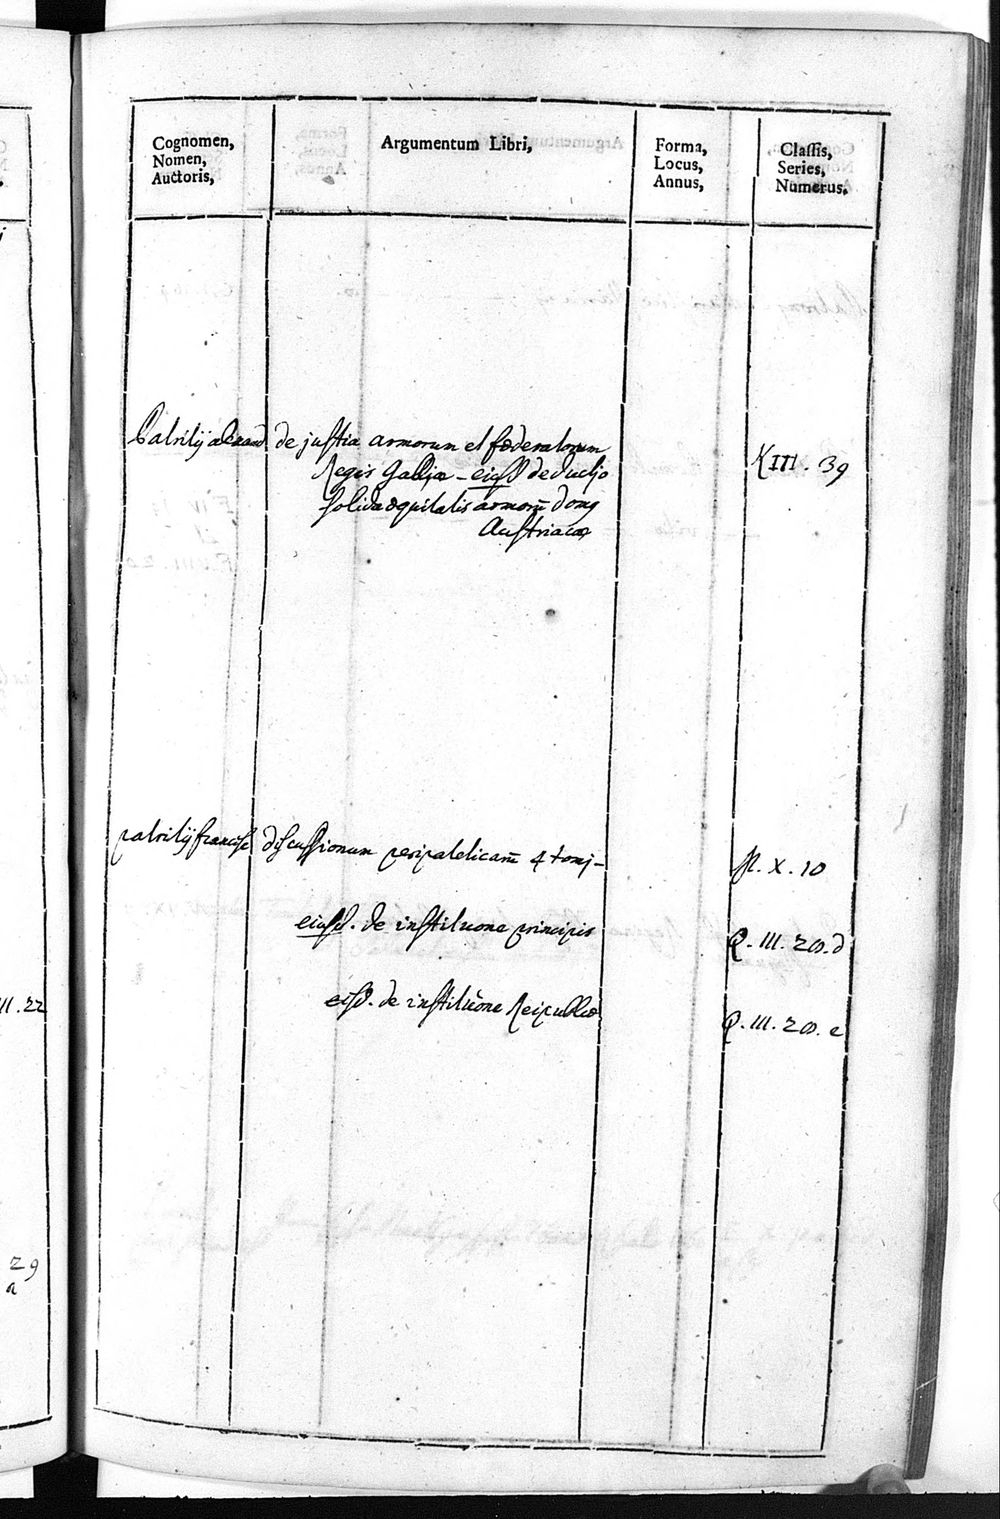 Cognomen,
Nomen,
Auctoris,
Argumentum Libri,
Forma,
Locus,
Annus,
Classis,
Series,
Numerus,
Patritij de justia armorum et foederatorum
Regis Galliæ - eiusd deductio
solida æquitatis armorũ
Austriacæ
KIII. 39
patritij francisc discussionum peripateticarũ 4 tomj -
P. X. 10
eiusd. de institutione principis
Q. III. 20. d
eiusd. de institutione Reipublicæ
Q. III. 20. e
II. 22
29
a